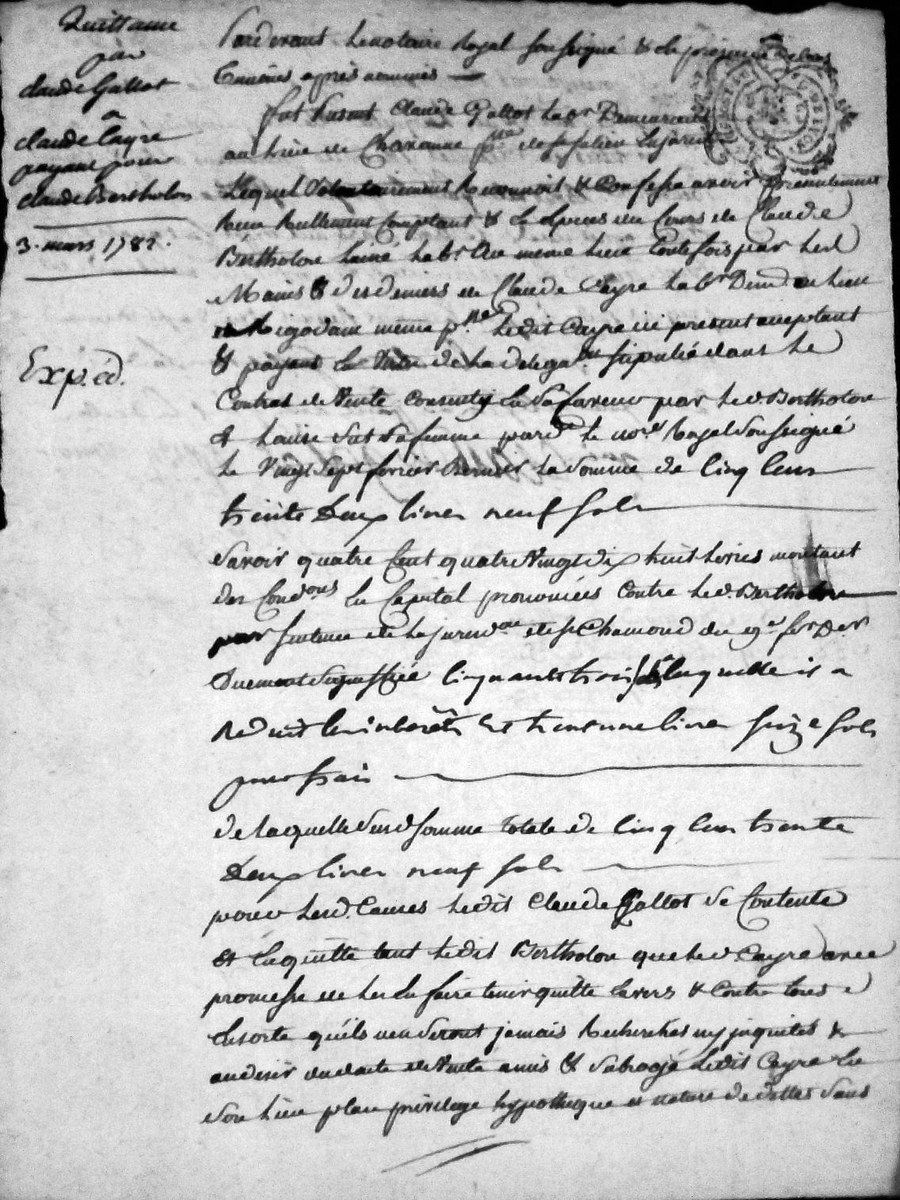 Quittance
par
claude Gallot
à
claude Cayre
payant pour
claude Bertholon
3. mars 1782.
Exped.
Pardevant le notaire Royal soussigné & en presence des
temoins après nommés
fut present Claude Gallot lab.r Demeurant
au lieu de Chavanne p.sse de st julien en jarret
Lequel Volontairement Reconnoit & Confesse avoir presentement
Reçu Réellement Comptant & en Especes du Cours de Claude
Bertholon lainé lab.r Au même lieu toutefois par les
Mains & des deniers de Claude Cayre lab.r Dem.t au lieu
même p.sse ledit Cayre ici present acceptant
& payant en Vertu de la delega.on stipulée dans le
Contrat de Vente Consenty en sa faveur par led. Bertholon
& sa femme pard.t le no.re Royal soussigné
le Vingt sept fevrier Dernier la somme de Cinq Cens
trente Deux livres neuf sols
savoir quatre Cent quatre Vingt dix huit livres montant
des Cond.ons en Capital prononcées Contre led. Bertholon
par sentence de la jurid.on de st Chamond du 9.e
Duement signiffiée Cinquante trois à laquelle il a
Reduit les interêts et trente une livres seize sols
pour frais
de laquelle susd. somme totale de Cinq Cens trente
Deux livres neuf sols
pour lesd. Causes ledit Claude Gallot se Contente
et en quitte tant ledit Bertholon que led. Cayre avec
promesse de les en faire tenir quitte Envers & Contre tous
Ensorte qu'ils n'en seront jamais Recherchés ny inquietés &
au desir dud. acte de Vente a mis & subrogé ledit Cayre En
son lieu place privilege hypotheque et nature de dettes sans